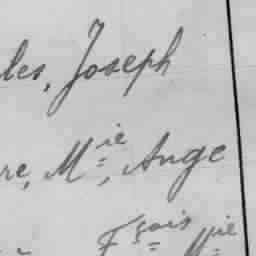 les, Joseph
re, Mie, Ange
Fçois Mie